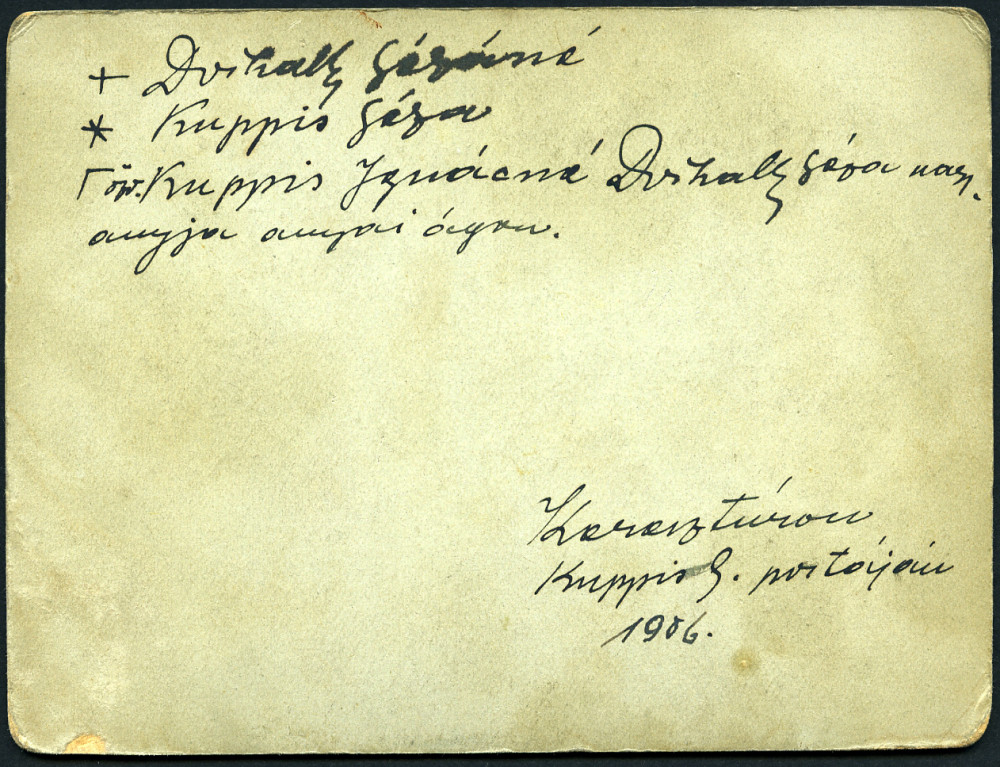 + Dvihally Gézáné
* Kuppis Géza
Γ özv. Kuppis Ignácné Dvihally Géza nagy-
anyja anyai ágon.
Kereszturon
Kuppis G. portáján
1906.